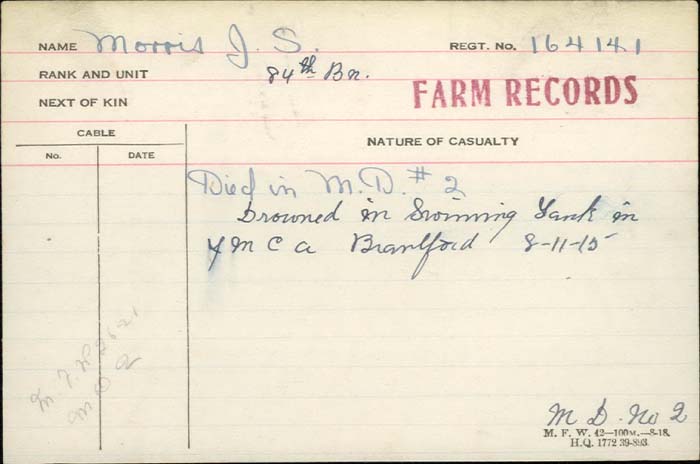 NAME Morris J. S. REGT. No. 164141
RANK AND UNIT 84th Bn.
NEXT OF KIN FARM RECORDS
CABLE NATURE OF CASUALTY
No. DATE
Died in M.D. # 2
Drowned in Swimming Tank in
Y M C A Brantford 8-11-15
M D No 2
M. F. W. 42—100M.—8-18.
H.Q. 1772 39-893.